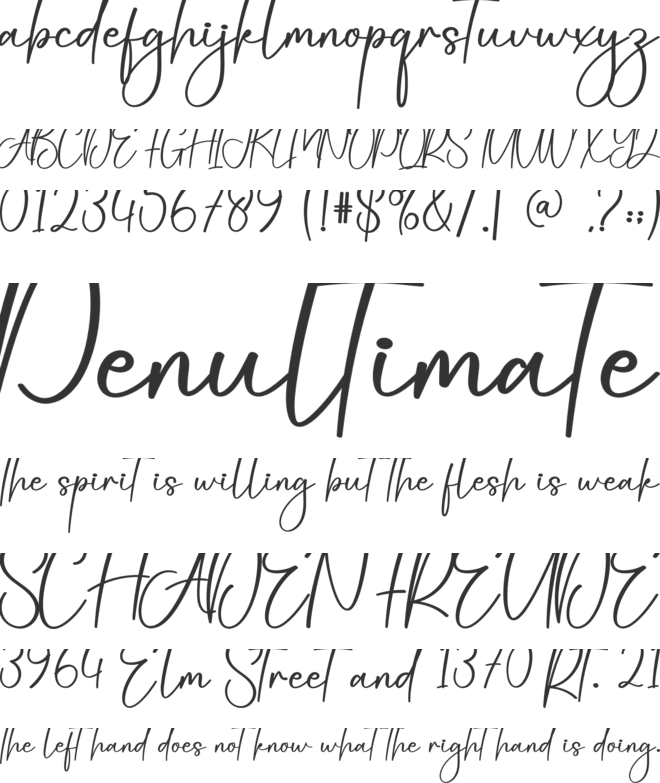 abcdefghijklmnopqrstuvwxyz
ABCDEFGHIJKLMNOPQRSTUVWXYZ
0123456789 (!#$%&/.| @ ,?:;)
Penultimate
the spirit is willing but the flesh is weak
SCHADENFREUDE
3964 Elm Street and 1370 Rt. 21
the left hand does not know what the right hand is doing.